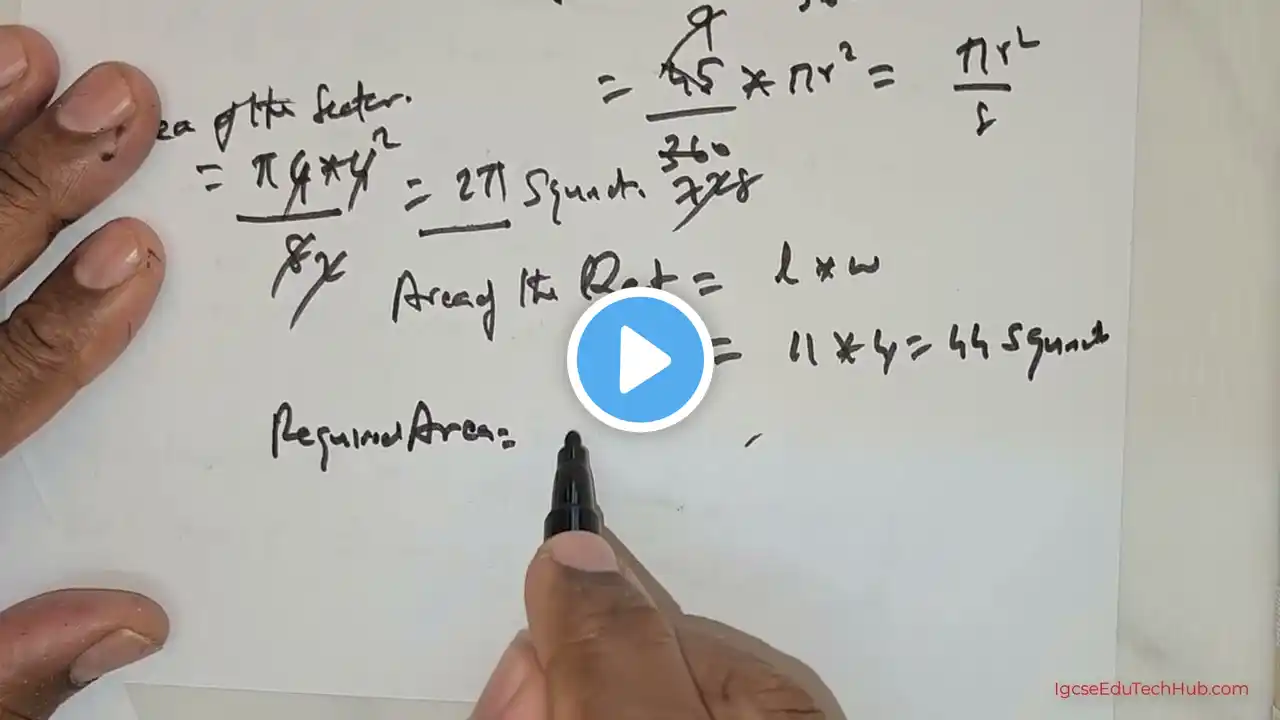 = 45/360 * πr² = πr²/8
ea of the Sector.
= π4*4/8 = 2π Squnit.
Area of the Rect = l * w
= 11 * 4 = 44 Squnit
Required Area =
IgcseEduTechHub.com